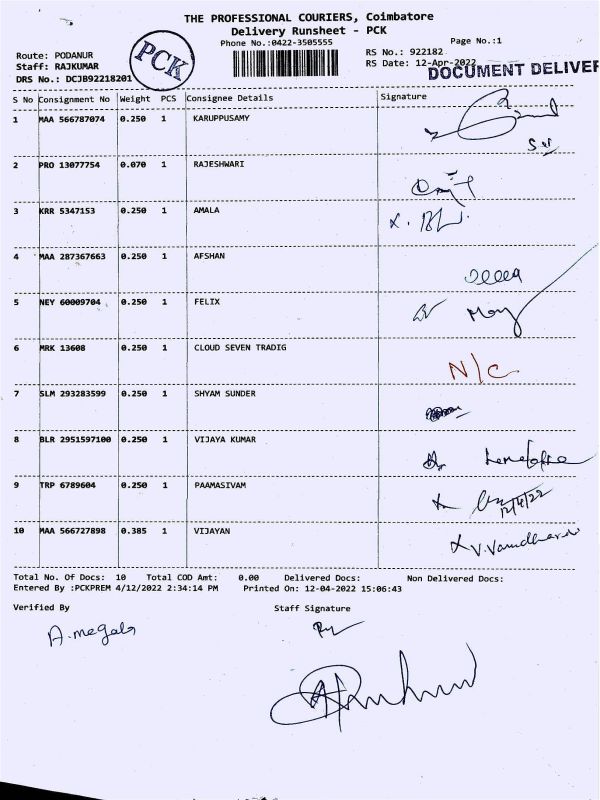 THE PROFESSIONAL COURIERS, Coimbatore
Delivery Runsheet - PCK
Phone No.:0422-3505555
Page No.:1
Route: PODANUR
Staff: RAJKUMAR
DRS No.: DCJB92218201
PCK
RS No.: 922182
RS Date: 12-Apr-2022
DOCUMENT DELIVER
S No Consignment No Weight PCS Consignee Details Signature
1 MAA 566787074 0.250 1 KARUPPUSAMY
2 PRO 13077754 0.070 1 RAJESHWARI
3 KRR 5347153 0.250 1 AMALA
4 MAA 287367663 0.250 1 AFSHAN
5 NEY 60009704 0.250 1 FELIX
6 MRK 13608 0.250 1 CLOUD SEVEN TRADIG N/C
7 SLM 293283599 0.250 1 SHYAM SUNDER
8 BLR 2951597100 0.250 1 VIJAYA KUMAR
9 TRP 6789604 0.250 1 PAAMASIVAM
12/4/22
10 MAA 566727898 0.385 1 VIJAYAN
Total No. Of Docs: 10 Total COD Amt: 0.00 Delivered Docs: Non Delivered Docs:
Entered By :PCKPREM 4/12/2022 2:34:14 PM Printed On: 12-04-2022 15:06:43
Verified By Staff Signature
A.megala